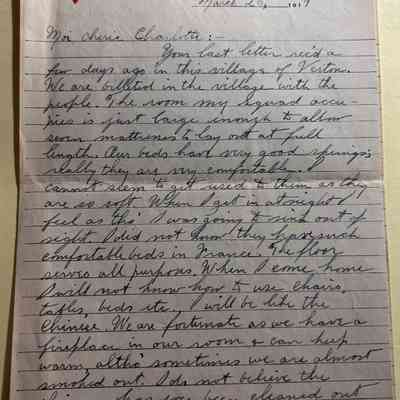 March 20, 1919
Moi cherie Charlotte:-
Your last letter rec'd a
few days ago in this village of Verton.
We are billeted in the village with the
people. The room my squad accu-
pies is just large enough to allow
seven mattresses to lay out at full
length. Our beds have very good springs;
really they are my comfortable. I
cannot seem to get used to them as they
are so soft. When I get in at night I
feel as tho' I was going to sink out of
sight. I did not know they have such
comfortable beds in France. The floor
serves all purposes. When I come home
I will not know how to use chairs,
tables, beds etc., I will be like the
Chinese. We are fortunate as we have a
fireplace in our room & can keep
warm, altho' sometimes we are almost
smoked out. I do not believe the
has ever been cleaned out